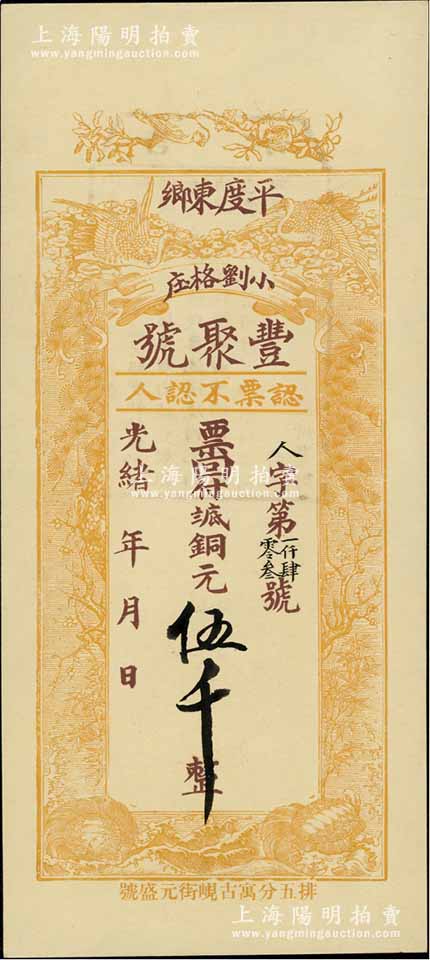 上海陽明拍賣
www.yangmingauction.com
平度東鄉
小劉格庄
豐聚號
認票不認人
人字第一仟肆零叁號
銅元伍千整
光緒 年 月 日
上海陽明拍賣
www.yangmingauction.com
排五分寓古峴街元盛號
上海陽明拍賣
www.yangmingauction.com